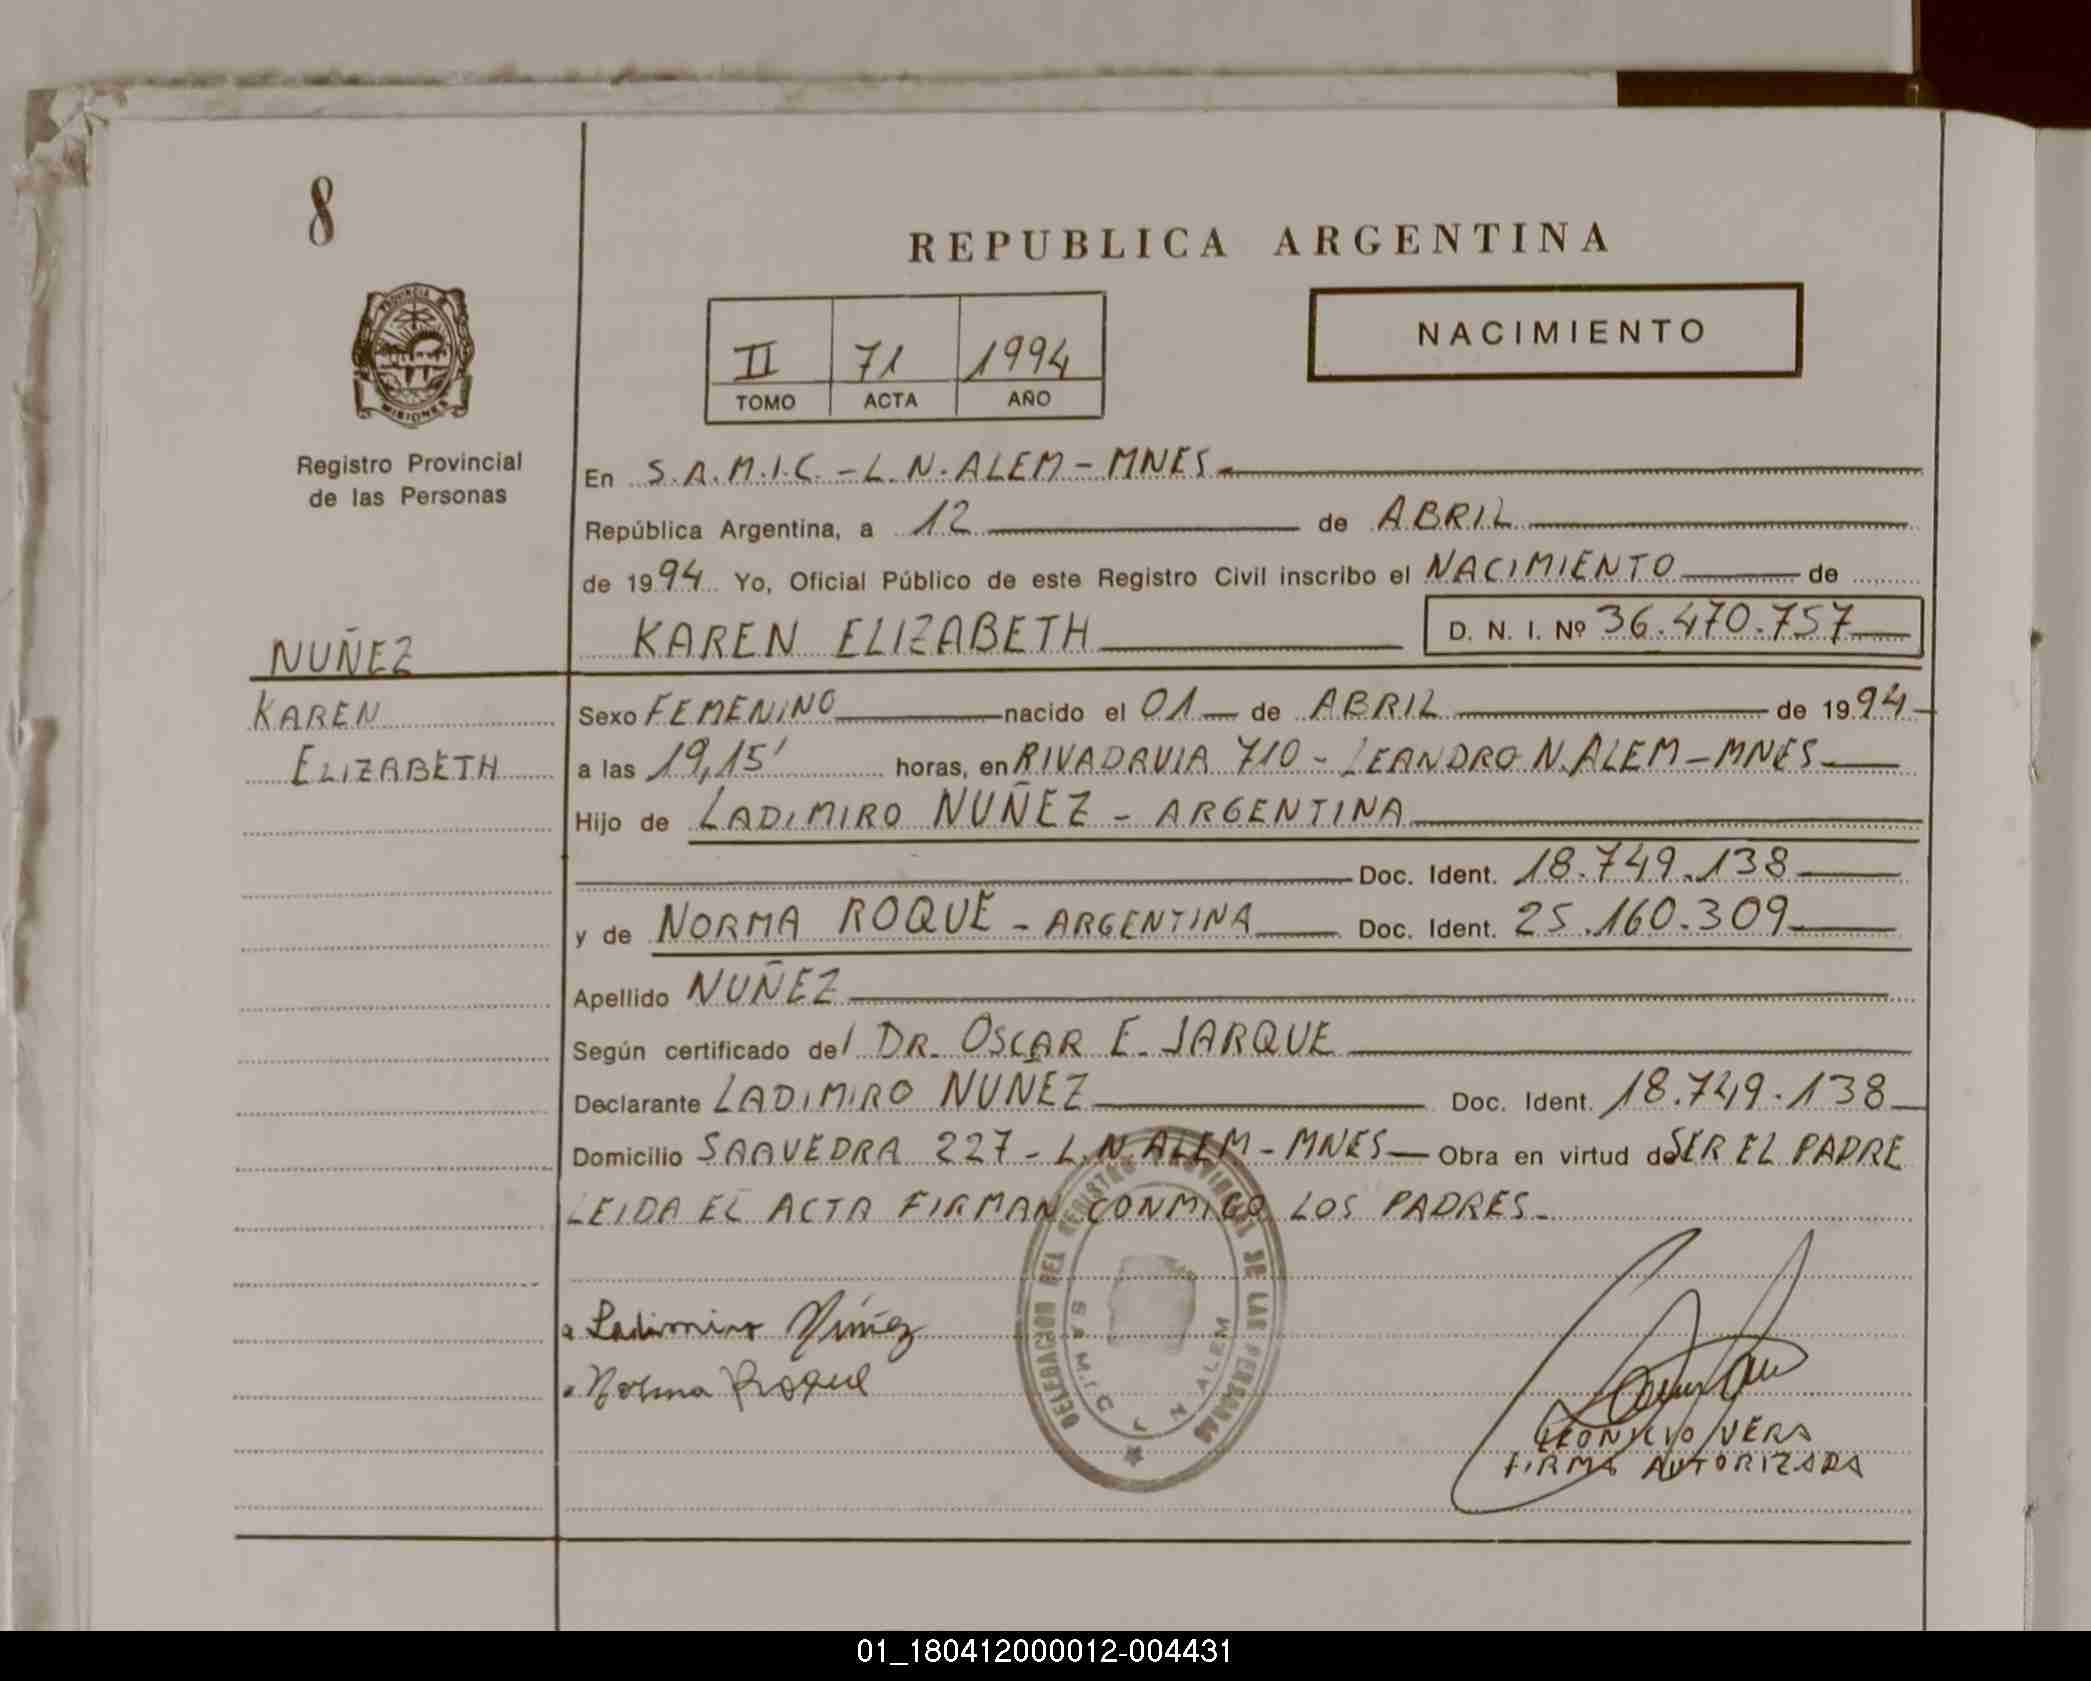 8
REPUBLICA ARGENTINA
PROVINCIA DE
MISIONES
Registro Provincial
de las Personas
II 71 1994
TOMO ACTA AÑO
NACIMIENTO
En S.A.M.I.C. - L.N. ALEM - MNES
República Argentina, a 12 de ABRIL
de 1994 Yo, Oficial Público de este Registro Civil inscribo el NACIMIENTO de
KAREN ELIZABETH D. N. I. Nº 36.470.757
NUÑEZ
KAREN
ELIZABETH
Sexo FEMENINO nacido el 01 de ABRIL de 1994
a las 19,15' horas, en RIVADAVIA 710 - LEANDRO N. ALEM - MNES
Hijo de LADIMIRO NUÑEZ - ARGENTINA
Doc. Ident. 18.749.138
y de NORMA ROQUE - ARGENTINA Doc. Ident. 25.160.309
Apellido NUÑEZ
Según certificado del DR. OSCAR E. JARQUE
Declarante LADIMIRO NUNEZ Doc. Ident. 18.749.138
Domicilio SAAVEDRA 227 - L.N. ALEM - MNES Obra en virtud de SER EL PADRE
LEIDA EL ACTA FIRMAN CONMIGO LOS PADRES.
Ladimiro Núñez
Norma Roque
DELEGACION DEL REGISTRO PROVINCIAL DE LAS PERSONAS
S A M I C L N ALEM
LEONICIO VERA
FIRMA AUTORIZADA
01_180412000012-004431